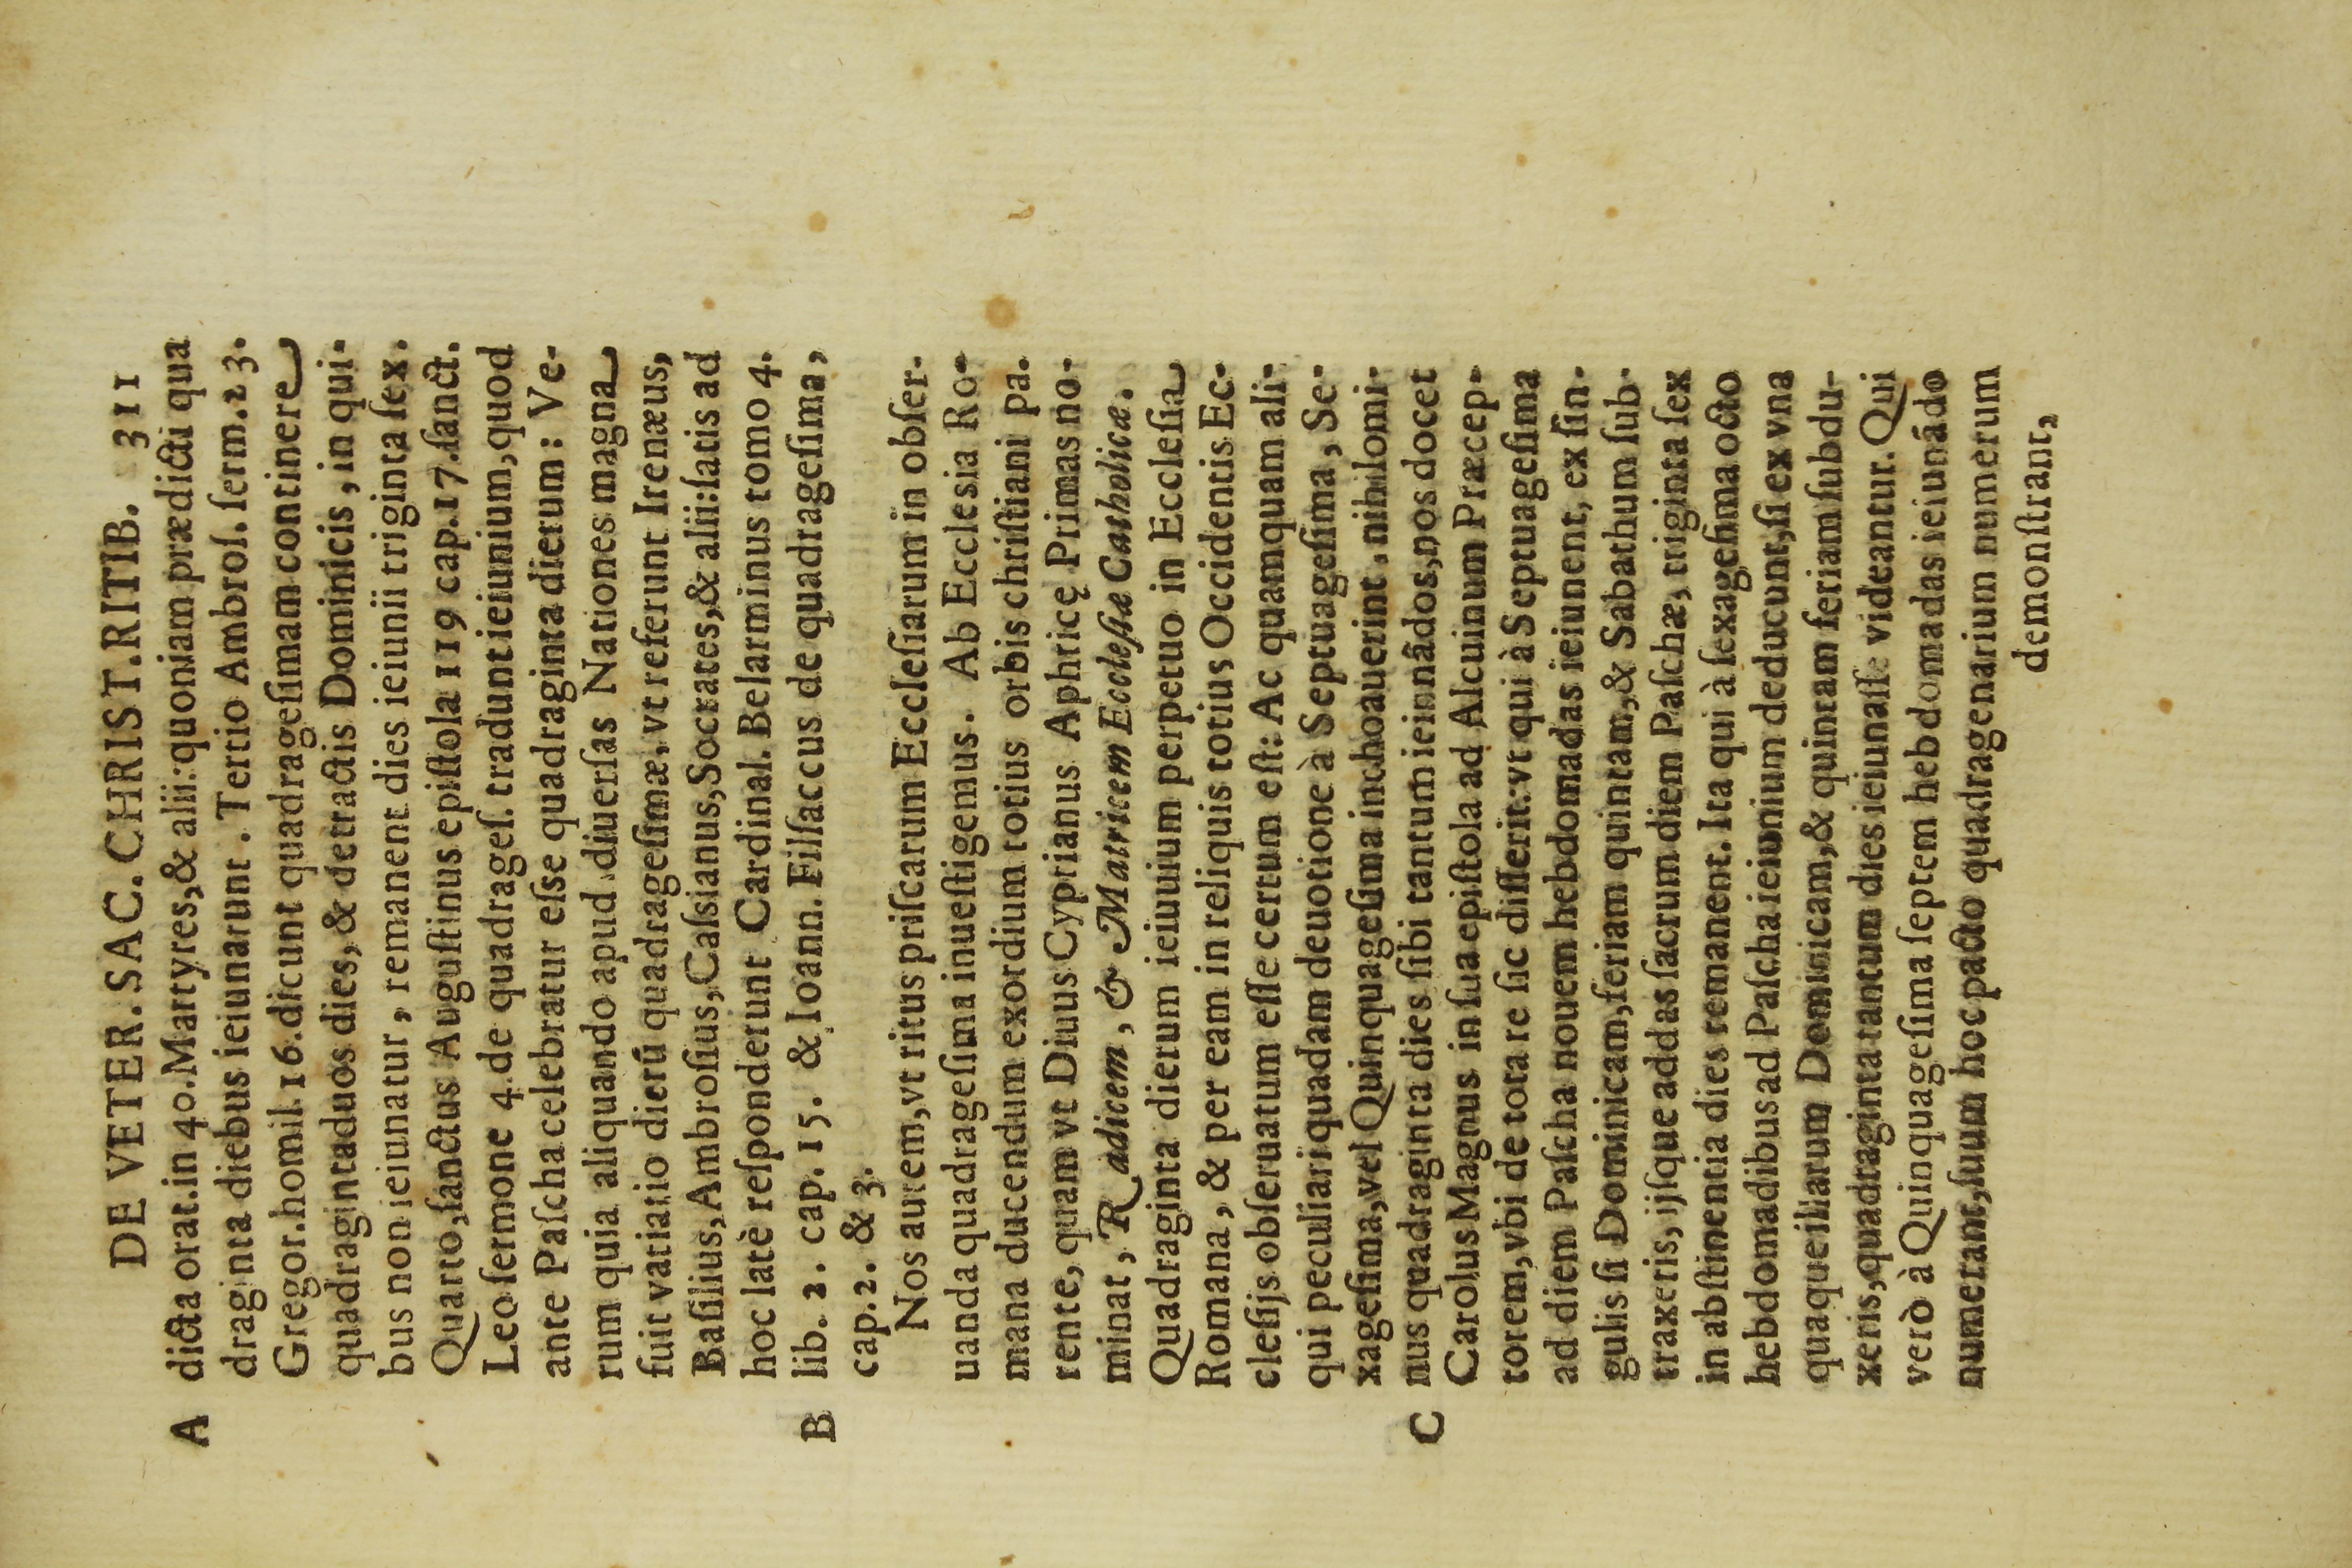 DE VETER. SAC. CHRIST. RITIB. 311
A dicta orat. in 40. Martyres, & alii: quoniam prædicti qua
draginta diebus ieiunarunt. Tertio Ambroſ. ſerm. 23.
Gregor. homil. 16. dicunt quadrageſimam continere
quadragintaduos dies, & detractis Dominicis, in qui-
bus non ieiunatur, remanent dies ieiunii triginta ſex.
Quarto, ſanctus Auguſtinus epiſtola 119 cap. 17. ſanct.
Leo ſermone 4. de quadrageſ. tradunt ieiunium, quod
ante Paſcha celebratur eſse quadraginta dierum: Ve-
rum quia aliquando apud diuerſas Nationes magna
fuit variatio dierū quadrageſimæ, vt referunt Irenæus,
Baſilius, Ambroſius, Caſsianus, Socrates, & alii: ſatis ad
hoc latè reſponderunt Cardinal. Belarminus tomo 4.
B lib. 2. cap. 15. & Ioann. Filſaccus de quadrageſima,
cap. 2. & 3.
Nos autem, vt ritus priſcarum Eccleſiarum in obſer-
uanda quadrageſima inueſtigemus. Ab Ecclesia Ro-
mana ducendum exordium totius orbis chriſtiani pa-
rente, quam vt Diuus Cyprianus Aphricę Primas no-
minat, Radicem, & Matricem Eccleſiæ Catholicæ.
Quadraginta dierum ieiuuium perpetuo in Eccleſia
Romana, & per eam in reliquis totius Occidentis Ec-
cleſijs obſeruatum eſſe certum eſt: Ac quamquam ali-
qui peculiari quadam deuotione à Septuageſima, Se-
xageſima, vel Quinquageſima inchoauerint, nihilomi-
C nus quadraginta dies ſibi tantum ieiunãdos, nos docet
Carolus Magnus in ſua epiſtola ad Alcuinum Præcep-
torem, vbi de tota re ſic diſſerit: vt qui à Septuageſima
ad diem Paſcha nouem hebdomadas ieiunent, ex ſin-
gulis ſi Dominicam, feriam quintam, & Sabathum ſub-
traxeris, ijſque addas ſacrum diem Paſchæ, triginta ſex
in abſtinentia dies remanent. Ita qui à ſexageſima octo
hebdomadibus ad Paſcha ieiunium deducunt, ſi ex vna
quaque illarum Dominicam, & quintam feriam ſubdu-
xeris, quadraginta tantum dies ieiunaſſe videantur. Qui
verò à Quinquageſima ſeptem hebdomadas ieiunãdo
numerant, ſuum hoc pacto quadragenarium numerum
demonſtrant,